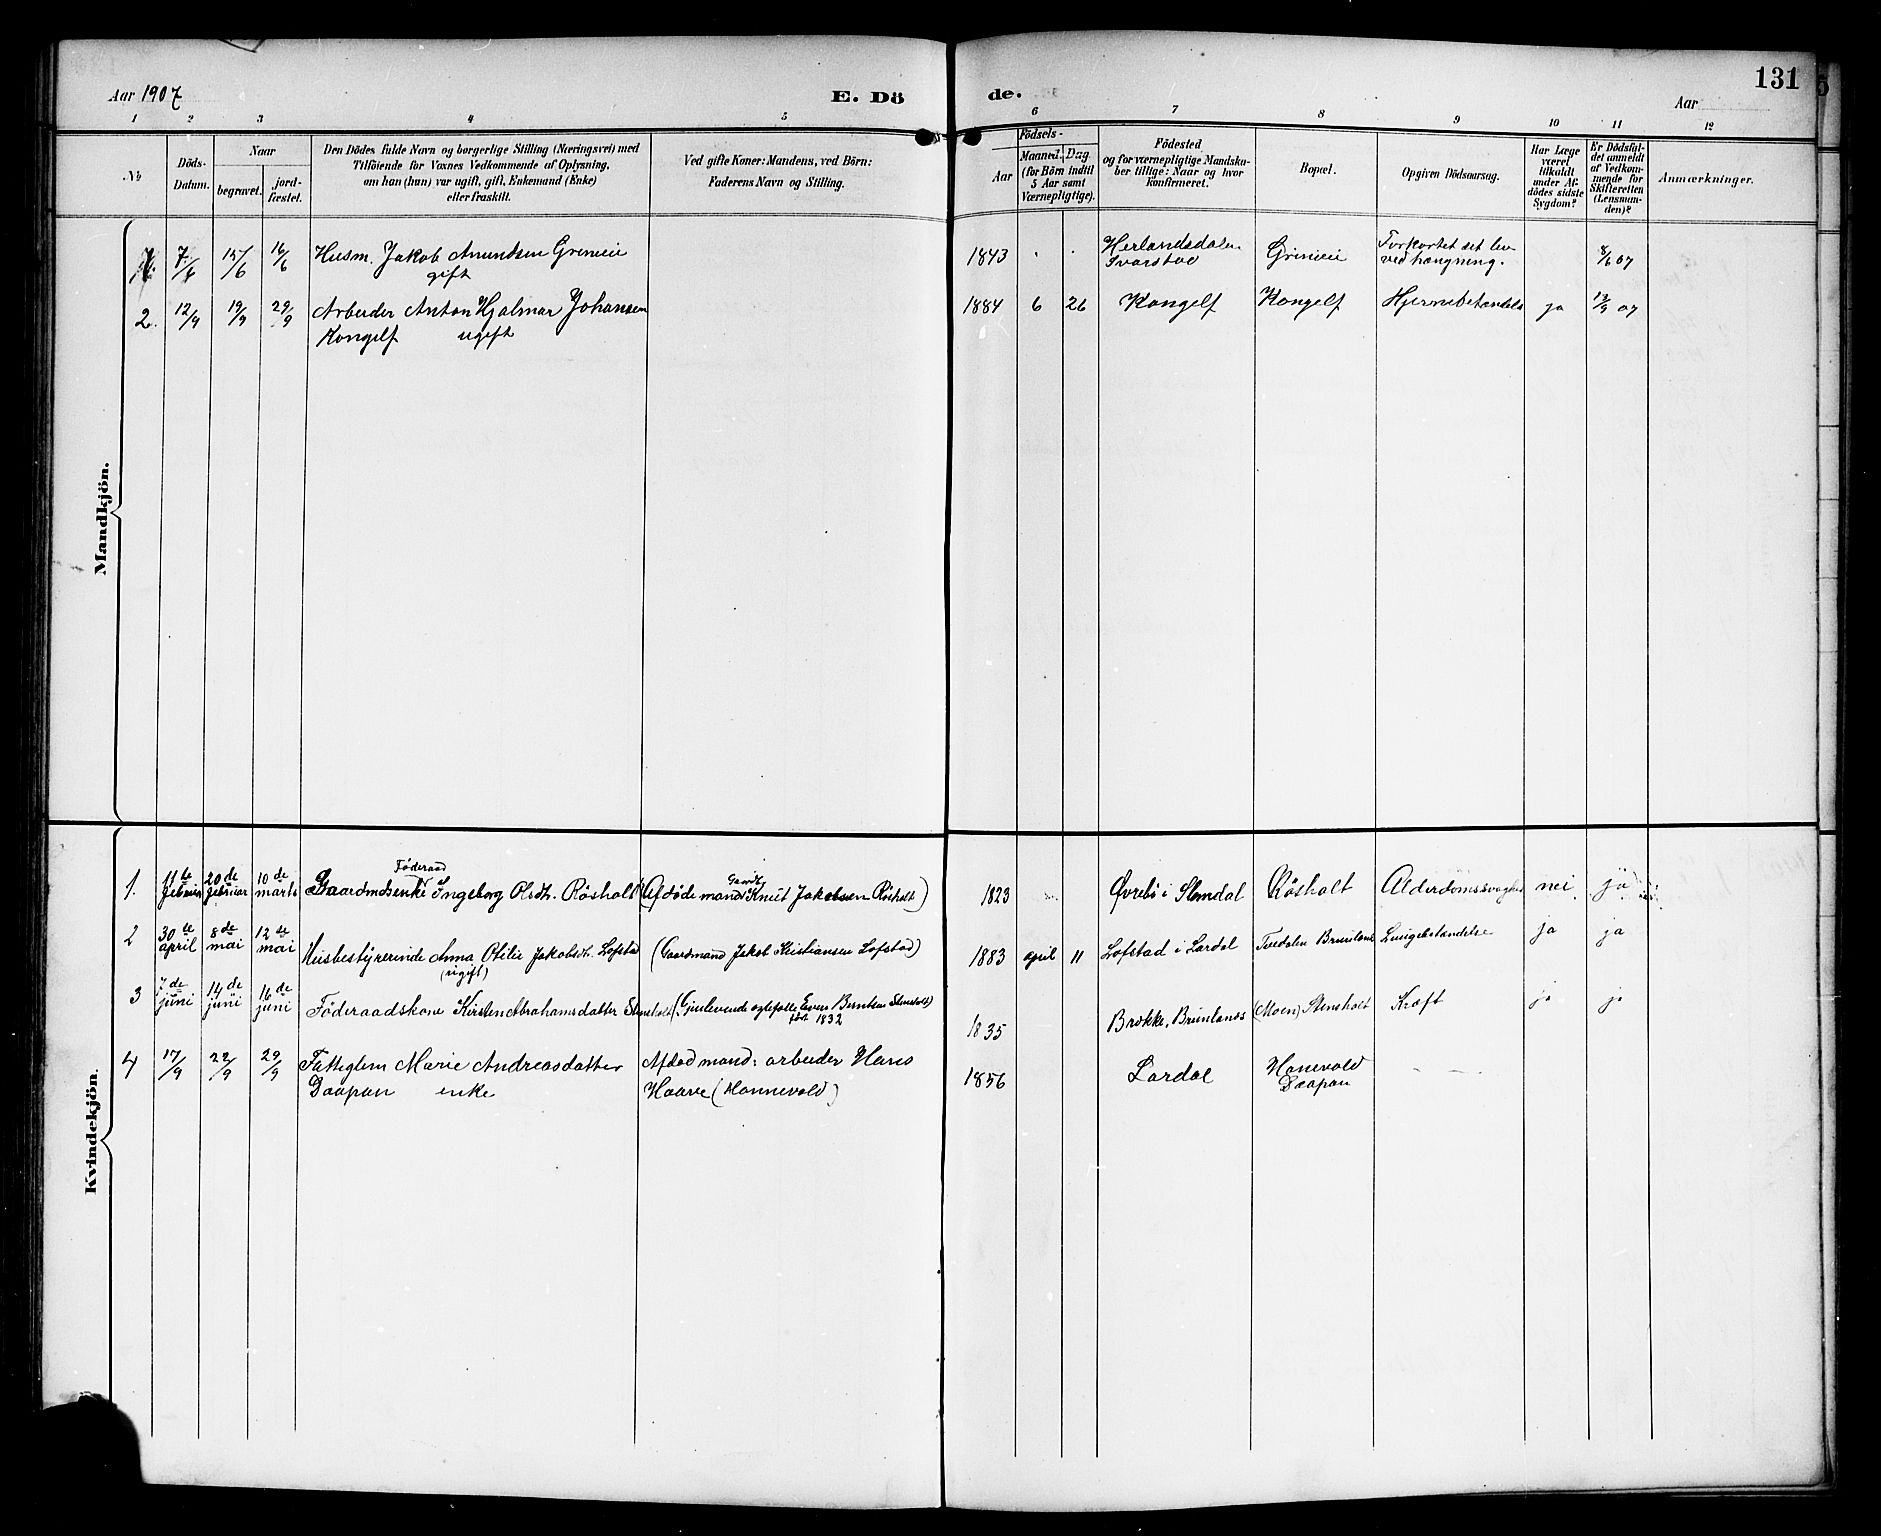 Aar 1907
E. Dö
de.
Aar
131
1 2 3 4 5
6 7 8 9 10 11 12
No
Döds-
Datum.
Naar
begravet.
jord-
fæstet.
Den Dödes fulde Navn og borgerlige Stilling (Næringsvei) med
Tilföiende for Voxnes Vedkommende af Oplysning,
om han (hun) var ugift, gift, Enkemand (Enke)
eller fraskilt.
Ved gifte Koner: Mandens, ved Börn:
Faderens Navn og Stilling.
Födsels-
Aar
Maaned. Dag
(for Börn indtil
5 Aar samt
Værnepligtige).
Födested
og for værnepligtige Mandska-
ber tillige: Naar og hvor
konfirmeret.
Bopæl.
Opgiven Dödsaarsag.
Har Læge
været
tilkaldt
under Af-
dödes sidste
Sygdom?
Er Dödsfal-
det anmeldt
af Vedkom-
mende for
Skifteretten
(Lensman-
den)?
Anmærkninger.
Mandkjön.
1. 7/6 15/6 16/6 Husm. Jakob Amundsen Grinieie
gift
1843 Herlandsdalen
Svarstad
Grinieie
Forkortet set lev
ved hængning.
8/6 07
2. 12/9 19/9 29/9 Arbeider Anton Hjalmar Johansen
Kongelf ugift
1884 6 26 Kongelf Kongelf Hjernebetændels ja 13/9 07
Kvindekjön.
1. 11te februar 20de februar 10de marts Föderaad
Gaardmdsenke Ingeborg Olsdt. Rösholt (Afdöde Gaard mand Knut Jakobsen Rösholt)
1823 Øvrebö i Slemdal Rösholt Alderdomssvaghed nei ja
2 30te april 8de mai 12de mai Husbestyrerinde Anna Otilie Jakobsdt. Lofstad
(ugift)
(Gaardmand Jakob Kristiansen Lofstad)
1883 april 11 Lofstad i Lardal Tvedalen Brunlanes Lungebetændelse ja ja
3 7de juni 14de juni 16de juni Föderaadskone Kirsten Abrahamsdatter Stensholt (Gjenlevende ægtefælle Even Berntsen Stensholt)
födt 1832
1835 Brekke, Brunlanes (Moen) Stensholt Kræft ja ja
4 17/9 22/9 29/9 Fattiglem Marie Andreasdatter
Daapan enke
Afdød mand: arbeider Hans
Haave (Hannevold)
1856 Lardal Hanevold
Daapan